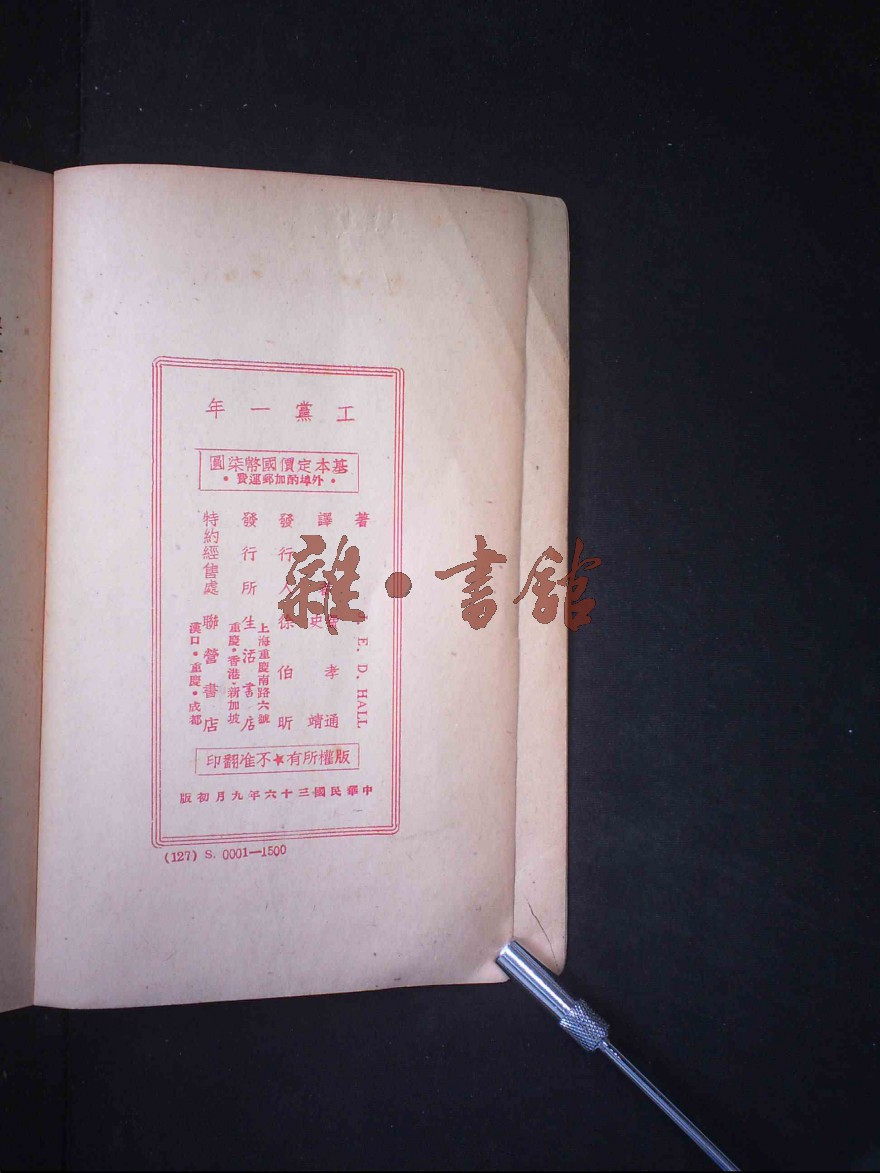 工黨一年
基本定價國幣柒圓
・外埠酌加郵運費・
著 E. D. HALL
譯者 費孝通
史靖
發行人 徐伯昕
發行所 生活書店
上海重慶南路六號
重慶・香港・新加坡
特約經售處 聯營書店
漢口・重慶・成都
版權所有★不准翻印
中華民國三十六年九月初版
(127) S. 0001—1500
雜・書館